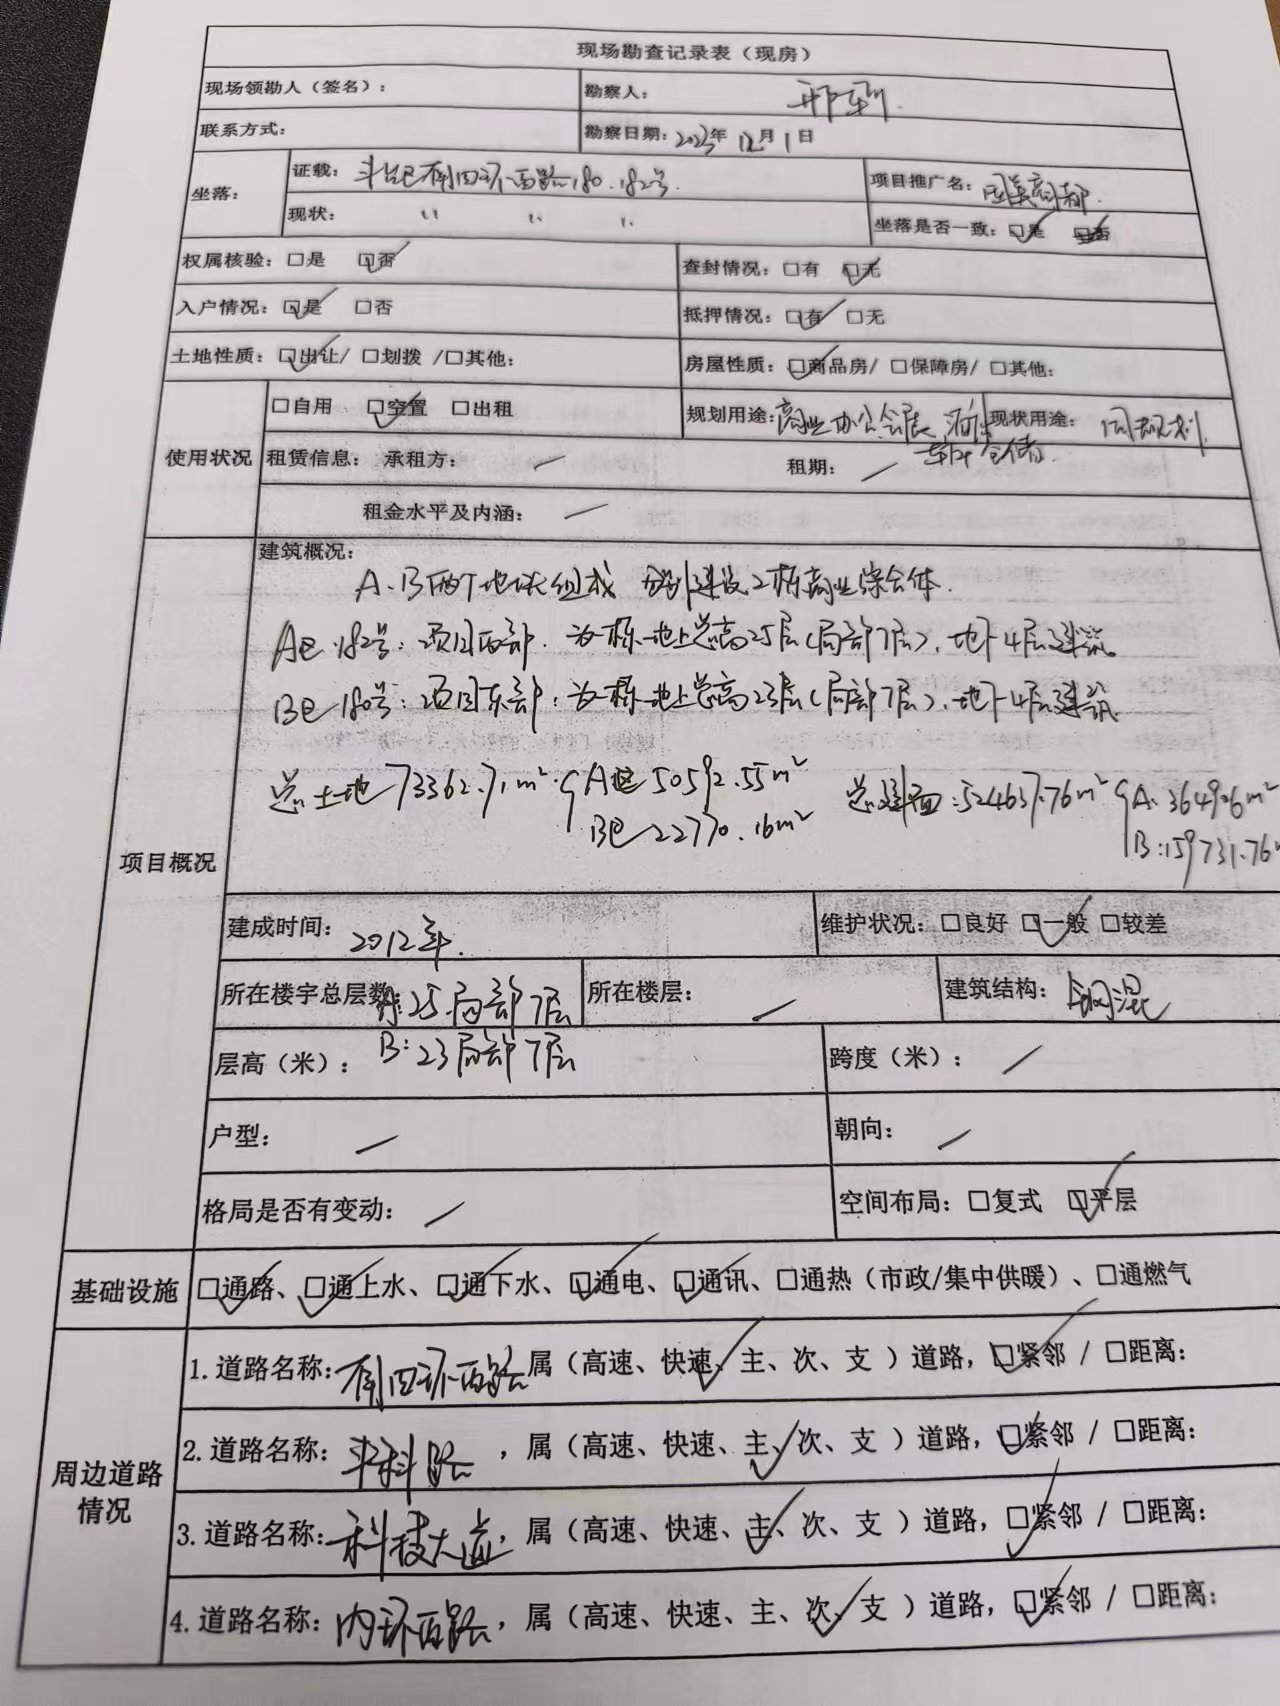 现场勘查记录表（现房）
现场领勘人（签名）： 勘察人：
联系方式： 勘察日期：2023年12月1日
坐落： 证载： 南四环西路180、182号 项目推广名：国美商都
现状： 〃 〃 〃 坐落是否一致：☑是 □否
权属核验：□是 ☑否 查封情况：□有 ☑无
入户情况：☑是 □否 抵押情况：☑有 □无
土地性质：☑出让/ □划拨 /□其他： 房屋性质：☑商品房/ □保障房/ □其他：
使用状况 □自用 ☑空置 □出租 规划用途：商业办公会展 车库仓储 现状用途：同规划
租赁信息： 承租方： / 租期： /
租金水平及内涵： /
项目概况 建筑概况：
A、B两个地块组成 分别建设2栋商业综合体
A区182号：项目西部，为一栋地上总高25层（局部7层），地下4层建筑
B区180号：项目东部，为一栋地上总高23层（局部7层），地下4层建筑
总土地73362.71m² A区50592.55m² 总建面：524637.76m² A：364906m²
B区22770.16m² B：159731.76
建成时间：2012年 维护状况：□良好 ☑一般 □较差
所在楼宇总层数：A：25 局部7层 所在楼层： / 建筑结构：钢混
B：23局部7层
层高（米）： 跨度（米）： /
户型： / 朝向： /
格局是否有变动： / 空间布局：□复式 ☑平层
基础设施 ☑通路、☑通上水、☑通下水、☑通电、☑通讯、□通热（市政/集中供暖）、□通燃气
周边道路情况 1.道路名称：南四环西路 属（高速、快速✓、主、次、支 ）道路，☑紧邻 / □距离：
2.道路名称：半科路 ，属（高速、快速、主✓、次、支 ）道路，☑紧邻 / □距离：
3.道路名称：科技大道，属（高速、快速、主✓、次、支 ）道路，☑紧邻 / □距离：
4.道路名称：内环西路，属（高速、快速、主、次✓、支 ）道路，☑紧邻 / □距离：